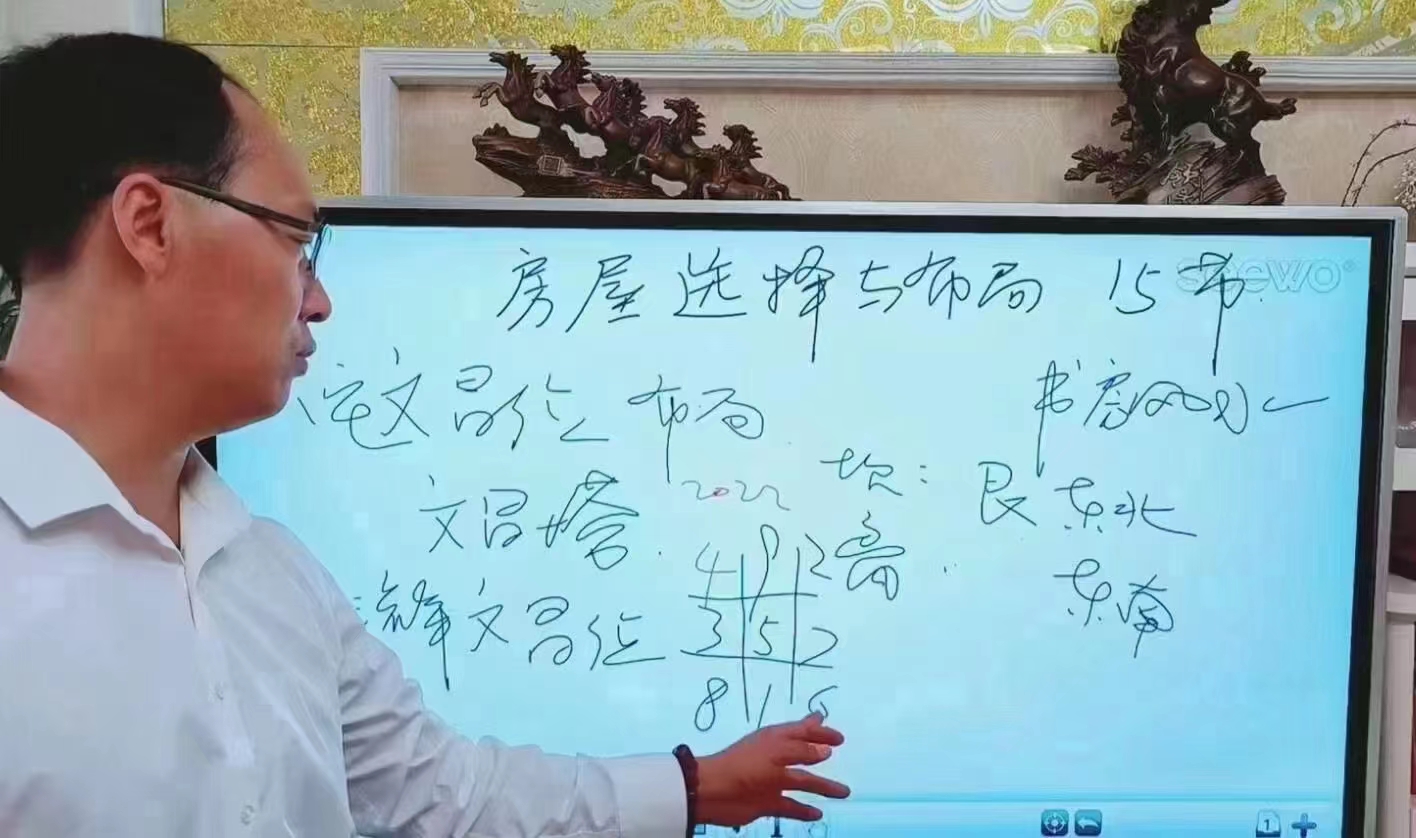 房屋选择与布局 15节
seewo
宅文昌位 布局
书房风水
文昌塔
2022
坎: 艮 东北
4 9 2
离
东南
文昌位
3 5 7
8 1 6
1